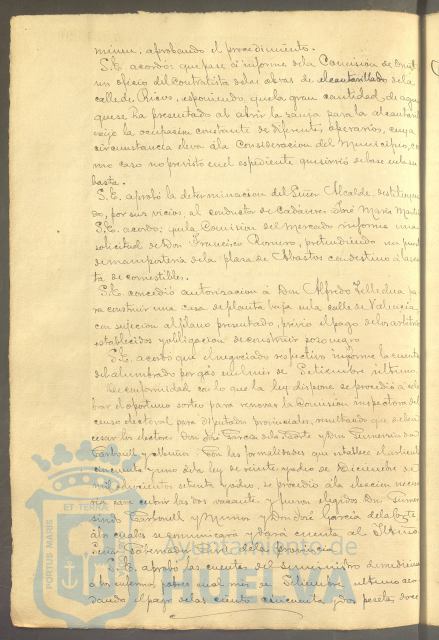 men, aprobando el procedimiento.
S.E. acordó: que pase á informe de la Comision de
un oficio del contratista de las obras de alcantarillado de la
calle de Ricos, esponiendo que la gran cantidad de agua
que se ha presentado al abrir la zanja para la alcantarilla
exije la ocupacion constante de diferentes operarios, cuya
circunstancia eleva á la Consideracion del Municipio, co
mo caso no previsto en el espediente que sirvió de base en la su
basta.
S.E. aprobó la determinacion del Señor Alcalde destituyen
do, por sus vicios, al conductor de Cadáveres José María
S.E. acordó: que la Comision del Mercado informe una
solicitud de Don Francisco Romero, pretendiendo un
de mampostería de la plaza de Abastos con destino á la ven
ta de comestibles.
S.E. concedió autorizacion á Don Alfredo pa
ra construir una casa de planta baja en la calle de Valencia
con sujecion al plano presentado, previo el pago de los arbitrios
establecidos y obligacion de construir pozo negro
S.E. acordó que el negociado respectivo informe la cuenta
del alumbrado por gas en el mes de Setiembre último.
De conformidad con lo que la ley dispone se procedió á cele
brar el oportuno sorteo para renovar la Comision inspectora del
censo electoral para diputados provinciales, resultando que deben
cesar los electores Don José García de la Torre y Don Gumersindo
Carbonell y Muñoz. Con las formalidades que establece el artículo
cincuenta y uno de la ley de veinte y ocho de Diciembre de
mil ochocientos setenta y ocho, se procedió á la eleccion necesa
ria para cubrir las dos vacantes y fueron elegidos Don Gumer
sindo Carbonell y Munoz y Don José García de la Torre
á los cuales se comunicará y dará cuenta al Iltmo
Señor Gobernador civil de la provincia.
S.E. aprobó las cuentas del suministro de medicinas
á los enfermos pobres en el mes de Setiembre último acor
dando el pago de las ciento cincuenta y dos pesetas doce
Ayuntamiento de
HUELVA
PORTUS MARIS ET TERRAE